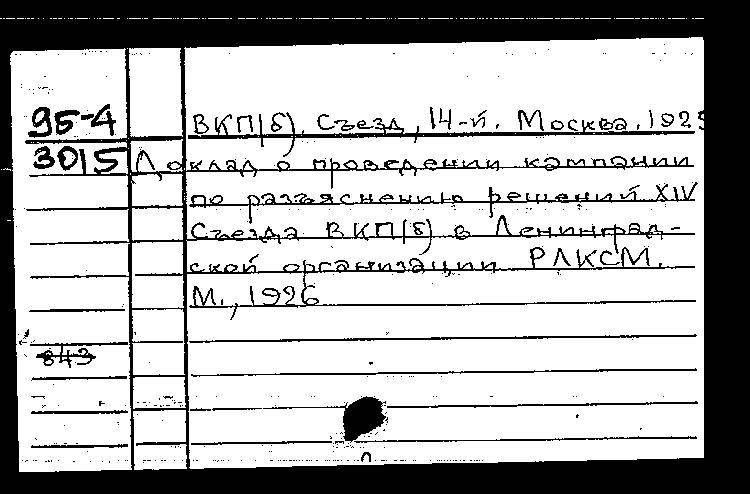 95-4 ВКП(б). Съезд, 14-й. Москва. 1925
3015 Доклад о проведении кампании
по разъяснению решений XIV
Съезда ВКП(б) в Ленинград-
ской организации РЛКСМ.
М., 1926
843